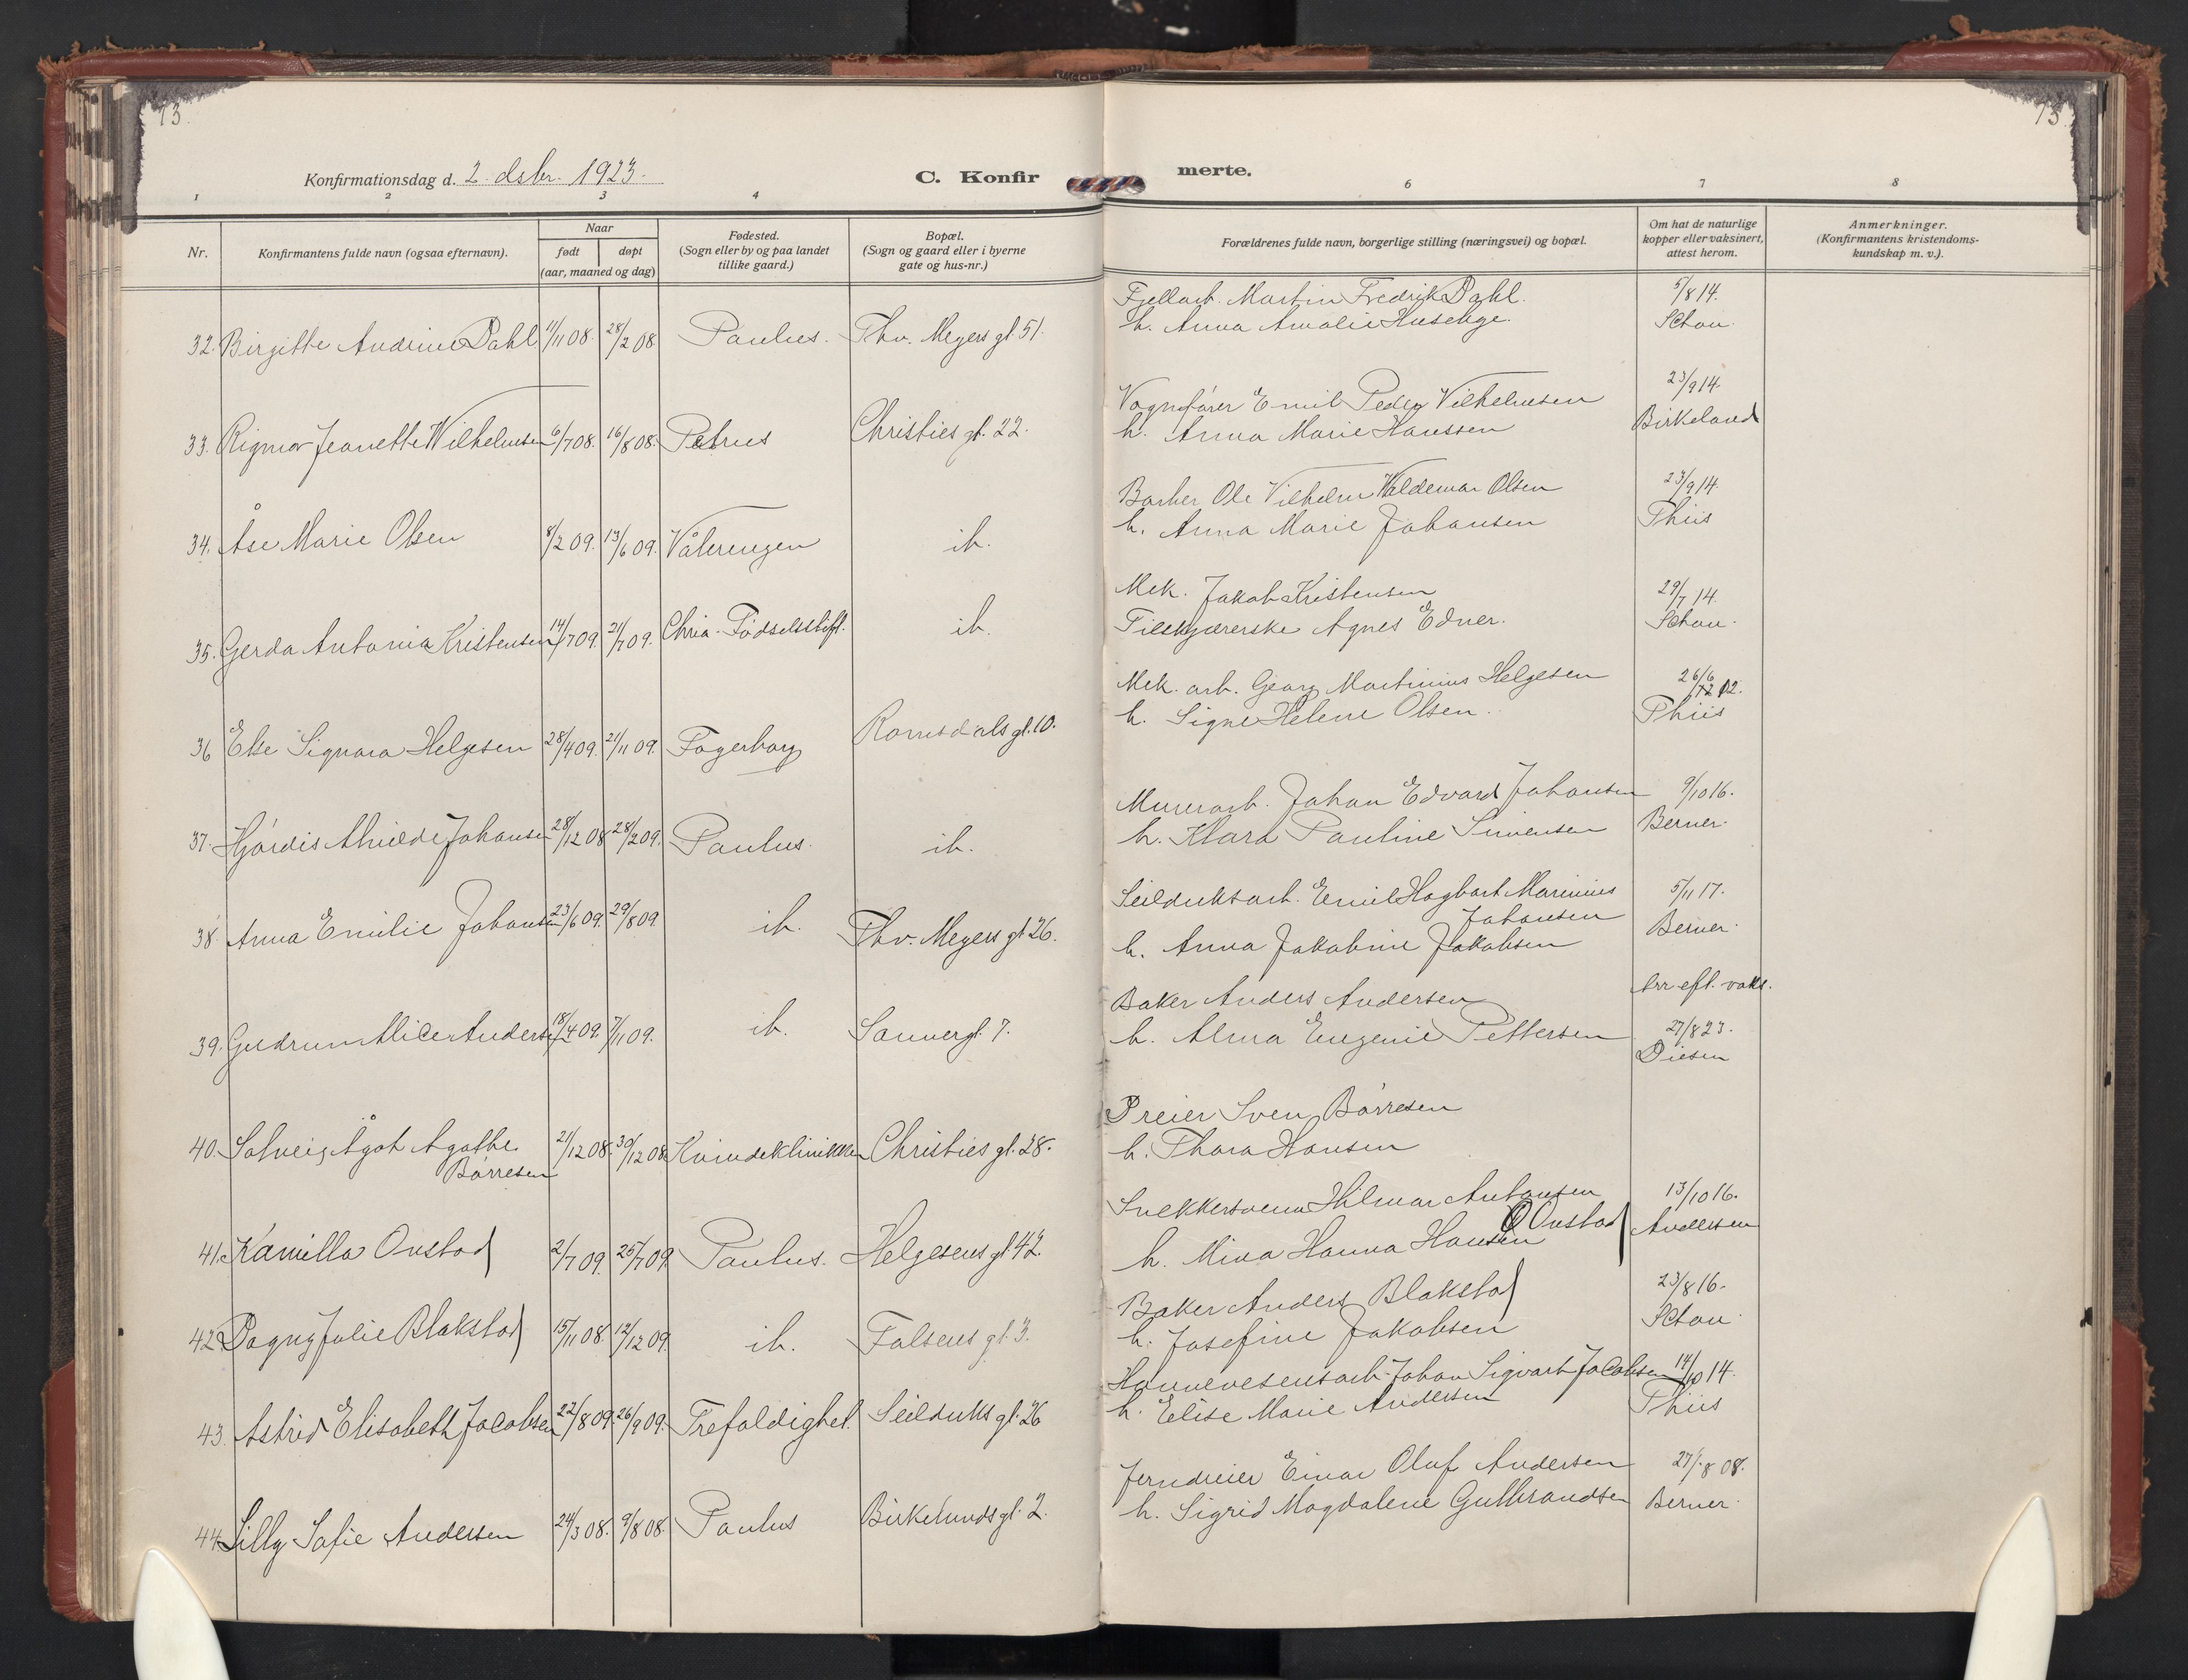 73.
73.
Konfirmationsdag d. 2. dsbr. 1923.
C. Konfir
merte.
1 2 3 4 6 7 8
Nr.
Konfirmantens fulde navn (ogsaa efternavn).
Naar
født
døpt
(aar, maaned og dag)
Fødested.
(Sogn eller by og paa landet
tillike gaard.)
Bopæl.
(Sogn og gaard eller i byerne
gate og hus-nr.)
Forældrenes fulde navn, borgerlige stilling (næringsvei) og bopæl.
Om hat de naturlige
kopper eller vaksinert,
attest herom.
Anmerkninger.
(Konfirmantens kristendoms-
kundskap m. v.).
32. Birgitte Andrine Dahl 11/11 08. 28/2 08 Paulus. Thv. Meyers gt. 51.
Fjellarb. Martin Fredrik Dahl. 5/8 14.
h. Anna Amalie Schou.
33. Rigmor Jeanette Wilhelmsen 6/7 08. 16/8 08. Petrus Christies gt. 22.
Vognfører Emil Peder Vilhelmsen 23/9 14.
h. Anna Marie Hanssen Birkeland
34. Åse Marie Olsen 8/2 09. 13/6 09. Vålerengen ib.
Barber Ole Vilhelm Valdemar Olsen 23/9 14.
h. Anna Marie Johansen Thiis
35. Gerda Antonia Kristensen 14/7 09. 21/7 09. Chria. Fødselsstift. ib.
Mek. Jakob Kristensen 29/7 14.
Tilskjærerske Agnes Edner. Schou.
36 Else Signora Helgesen 28/4 09. 21/11 09. Fagerborg Romsdals gt. 10.
Mek. arb. Georg Martinius Helgesen 26/6 12.
h. Signe Helene Olsen. Thiis
37. Hjórdis Alvilde Johansen 28/12 08 28/2 09. Paulus. ib.
Murerarb. Johan Edvard Johansen 9/10 16.
h. Klara Pauline Simensen Berner.
38 Anna Emilie Johansen 23/6 09. 29/8 09. ib. Thv. Meyers gt. 26.
Seilduksarb. Emil Hagbart Marinius 5/11 17.
Johansen
h. Anna Jakobine Jakobsen Berner.
39. Gudrun Alice Andersen 18/4 09. 7/11 09. ib. Sannergt. 7.
Baker Anders Andersen Arr eft. vaks.
h. Alma Eugenie Pettersen 27/8 23.
Diesen
40. Solveig Ågot Agathe 21/12 08. 30/12 08. Kvindeklinikken Christies gt. 28.
Bórresen
Dreier Sven Bórresen
h. Thora Hansen
41. Kamilla Onstad 2/7 09. 25/7 09. Paulus. Helgesens gt. 42.
Snekkersvenn Hilmar Antonsen 13/10 16.
Onstad
h. Mina Hanna Hansen Andersen
42. Dagny Julie Blakstad 15/11 08. 12/12 09. ib. Falsens gt. 3.
Baker Anders Blakstad 23/8 16.
h. Josefine Jakobsen Schou.
43. Astrid Elisabeth Jacobsen 22/8 09. 26/9 09. Trefoldighet. Seilduks gt. 26
Havnevesensarb. Johan Sigvart Jacobsen 14/10 14.
h. Elise Marie Andersen Thiis
44. Lilly Sofie Andersen 24/3 08. 9/8 08. Paulus Birkelunds gt. 2.
Jerndreier Einar Olaf Andersen 27/8 08.
h. Sigrid Magdalene Gulbrandsen Berner.